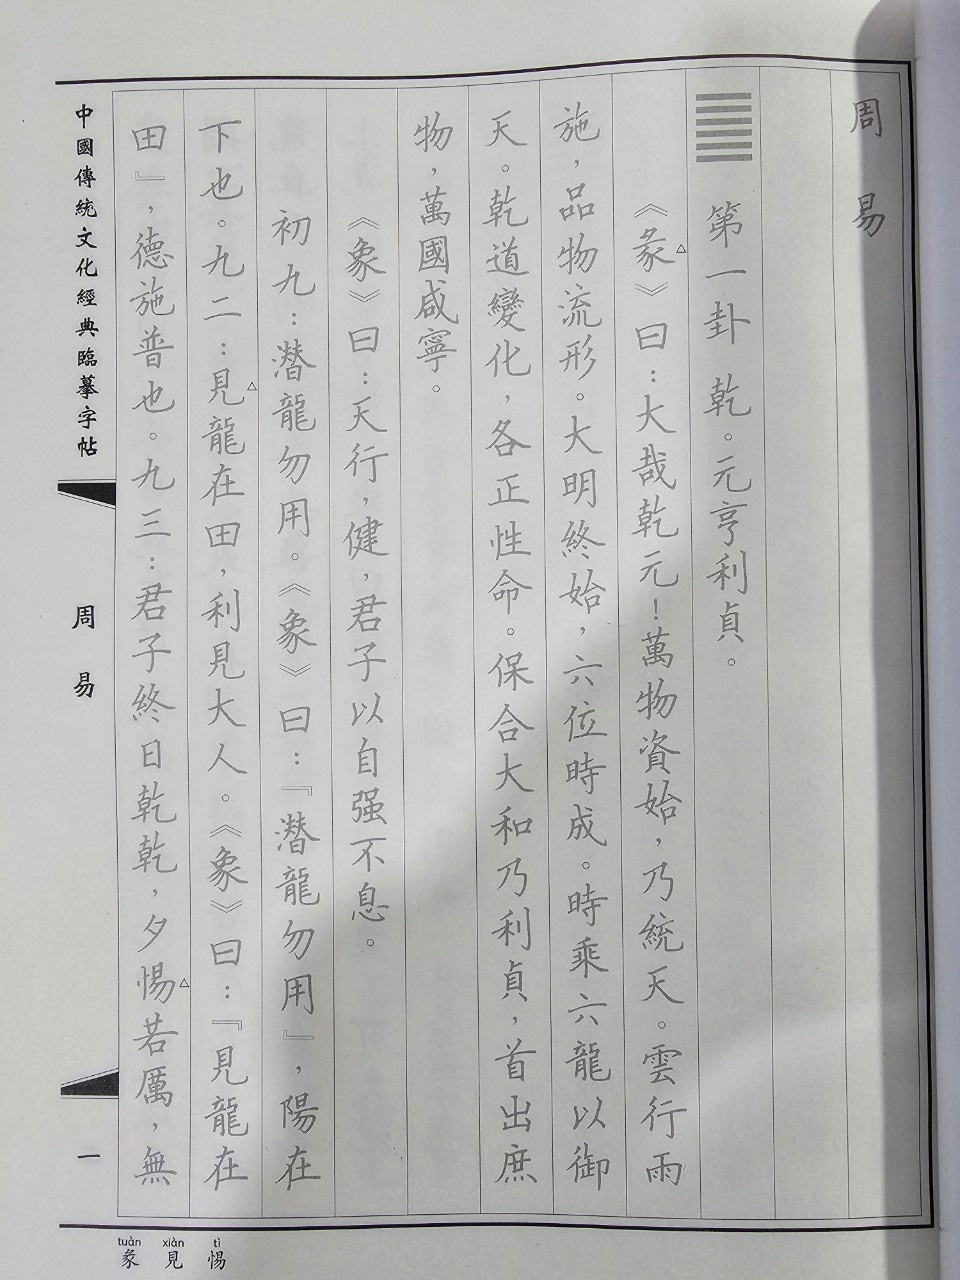 周易
䷀第一卦 乾。元亨利貞。
《彖》曰：大哉乾元！萬物資始，乃統天。雲行雨
施，品物流形。大明終始，六位時成。時乘六龍以御
天。乾道變化，各正性命。保合大和乃利貞，首出庶
物，萬國咸寧。
《象》曰：天行，健，君子以自强不息。
初九：潛龍勿用。《象》曰：『潛龍勿用』，陽在
下也。九二：見龍在田，利見大人。《象》曰：『見龍在
田』，德施普也。九三：君子終日乾乾，夕惕若厲，無
中國傳統文化經典臨摹字帖
周易
一
tuàn xiàn tì
彖 見 惕